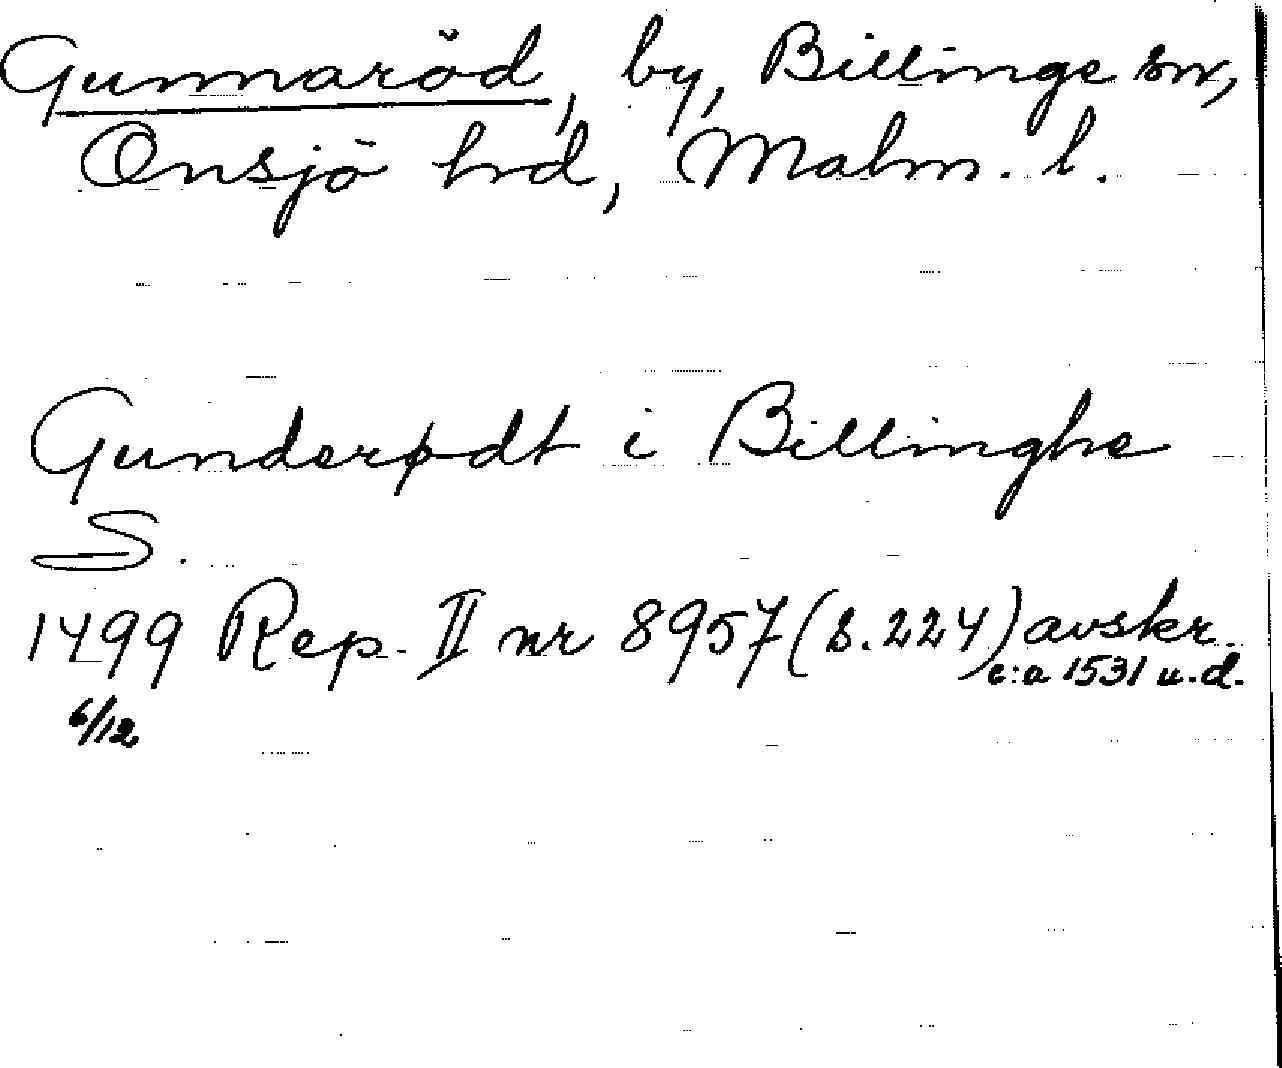 Gunnaröd, by, Billinge sn,
Onsjö hrd, Malm. l.
Gunderødt i Billinghe
S.
1499 Rep. II nr 8957 (S.224) avskr.
c:a 1531 u.d.
6/12